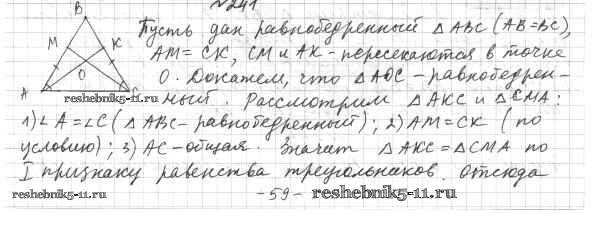 №241
B
M
K
O
A
C
Пусть дан равнобедренный △ABC (AB=BC),
AM=CK, CM и AK - пересекаются в точке
O. Докажем, что △AOC - равнобедрен-
ный. Рассмотрим △AKC и △CMA:
reshebnik5-11.ru
1) ∠A=∠C (△ABC - равнобедренный); 2) AM=CK (по
условию); 3) AC - общая. Значит △AKC=△CMA по
I признаку равенства треугольников. Отсюда
reshebnik5-11.ru
- 59 -
reshebnik5-11.ru